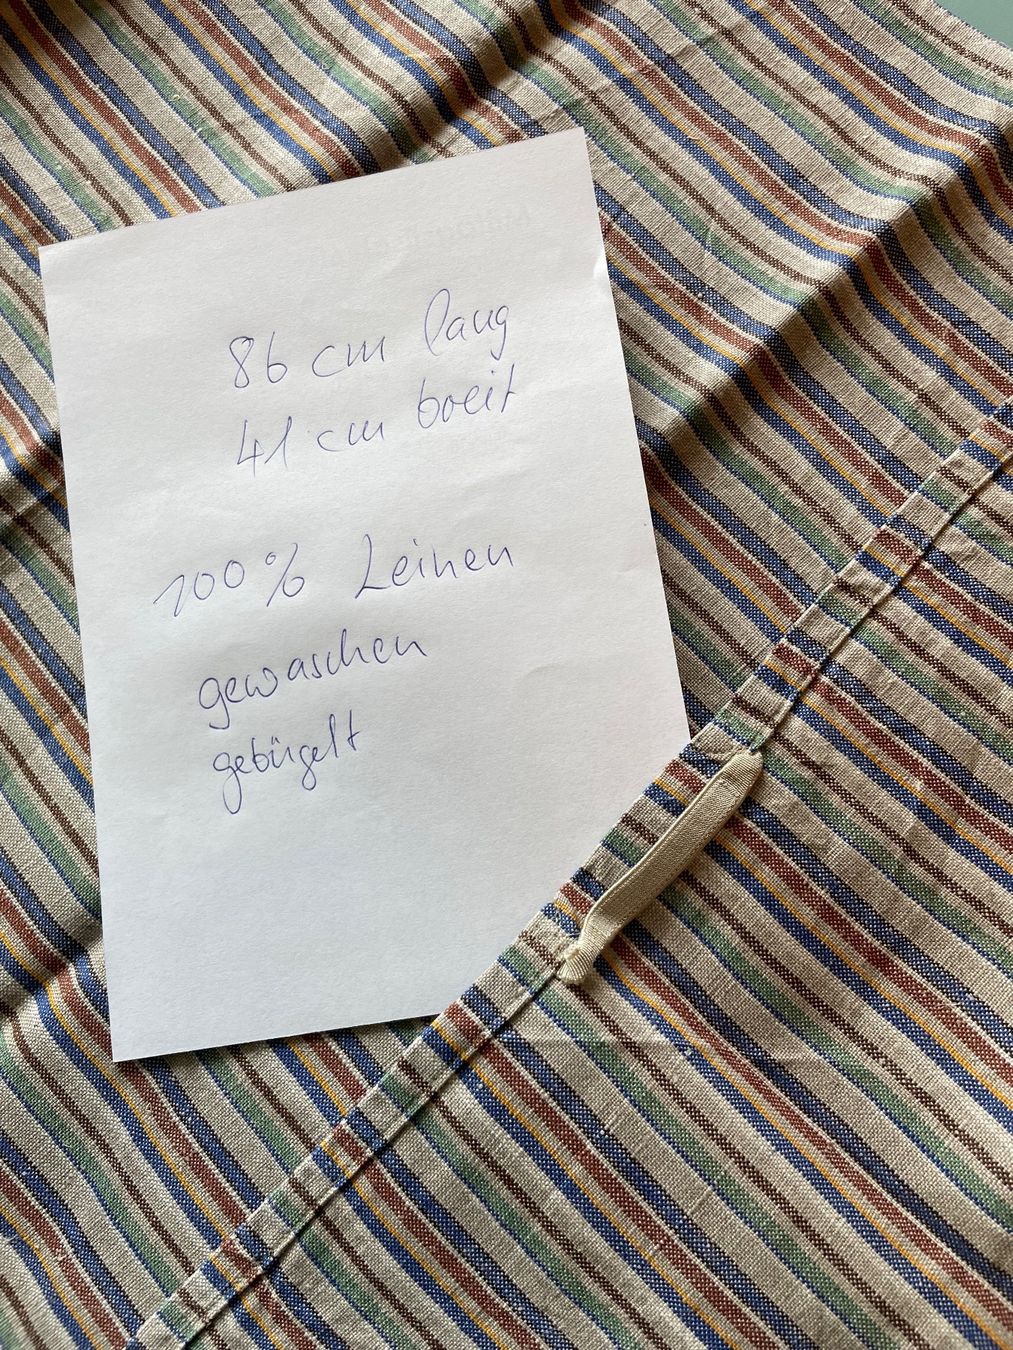 86 cm lang
41 cm breit
100% Leinen
gewaschen
gebügelt